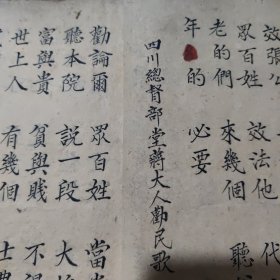 效張公 代
眾百姓 效法他 聽
老的們 來幾個
年 的 必要
四川總督部堂蔣大人勸民歌
勸諭爾 眾百姓 當
聽本院 說一段 大
富與貴 貧與賤 不
世上人 有幾個 士